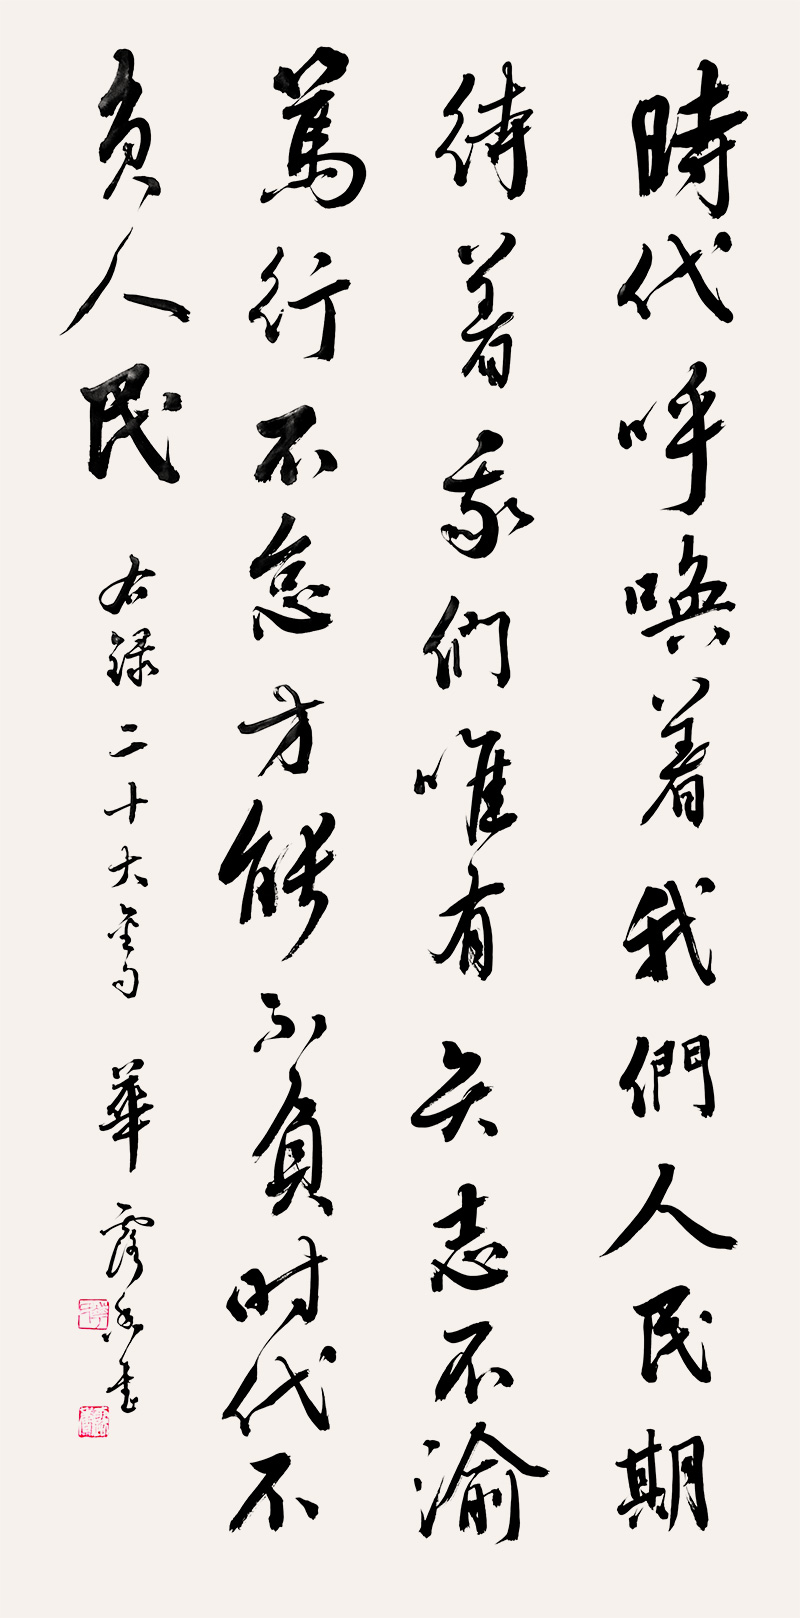 時代呼喚着我們人民期
待着我們唯有矢志不渝
篤行不怠方能不負时代不
負人民 右録二十大金句 華 書